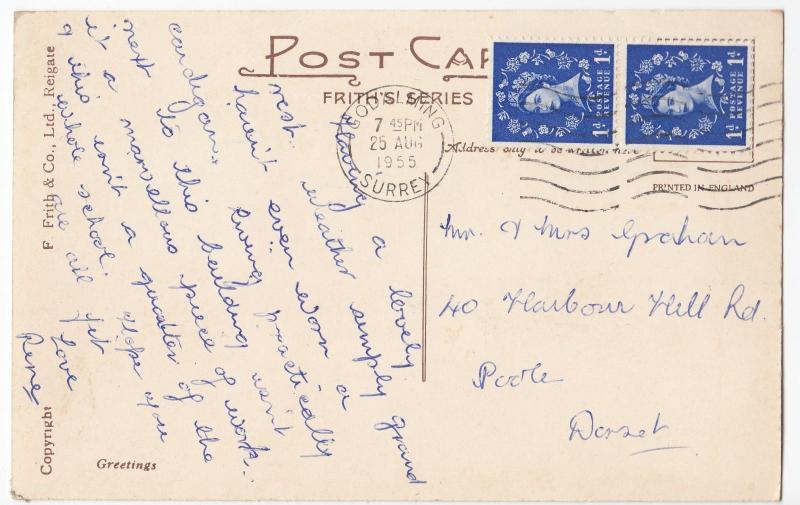 POST CAR
FRITH'S SERIES
GODALMING
7 45 PM
25 AUG
1955
SURREY
1d POSTAGE REVENUE 1d
1d POSTAGE REVENUE 1d
Address only to be written here
PRINTED IN ENGLAND
F Frith & Co., Ltd., Reigate
Copyright
Greetings
Having a lovely
rest. Weather simply grand
haven't even worn a
cardigan. Living practically
next to this building isn't
it a marvellous piece of work.
& this isn't a quarter of the
whole school. Hope you
are all fit
Love
Rene
Mr. & Mrs Graham
40 Harbour Hill Rd.
Poole
Dorset